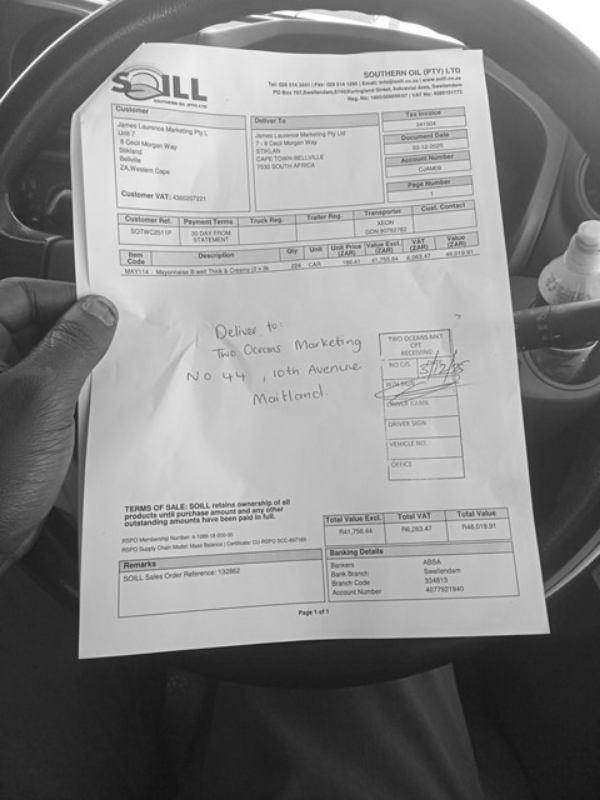 SOILL
SOUTHERN OIL (PTY) LTD
SOUTHERN OIL (PTY) LTD
Tel: 028 514 3441 | Fax: 028 514 1250 | Email: info@soill.co.za | www.soill.co.za
Swellendam
Customer
James Laurence Marketing Pty L
Unit 7
8 Cecil Morgan Way
Stikland
Bellville
ZA,Western Cape
Customer VAT: 4360207221
Deliver To
James Laurence Marketing Pty Ltd
7 - 8 Cecil Morgan Way
STIKLAN
CAPE TOWN-BELLVILLE
7530 SOUTH AFRICA
Tax Invoice
341504
Document Date
03-12-2025
Account Number
CJAM09
Page Number
1
Customer Ref. Payment Terms Truck Reg. Trailer Reg. Transporter Cust. Contact
SOTWC2511P 30 DAY FROM STATEMENT XEON
Item Code Description Qty Unit Unit Price (ZAR) Value Excl. (ZAR) VAT (ZAR) Value (ZAR)
MAY114 Mayonnaise B-well Thick & Creamy 224 CAR 186.41 6,263.47 48,019.91
Deliver to:
Two Oceans Marketing
No 44, 10th Avenue
Maitland.
TWO OCEANS MKT
CPT
RECEIVING
NO C/S.
5/12/25
DRIVER NAME
DRIVER SIGN
VEHICLE NO.
OFFICE
TERMS OF SALE: SOILL retains ownership of all
products until purchase amount and any other
outstanding amounts have been paid in full.
RSPO Membership Number:
RSPO Supply Chain Model: Mass Balance | Certificate:
Remarks
SOILL Sales Order Reference: 132862
Total Value Excl. Total VAT Total Value
R41,756.44 R6,263.47 R48,019.91
Banking Details
Bankers ABSA
Bank Branch Swellendam
Branch Code 334813
Account Number 4077921940
Page 1 of 1